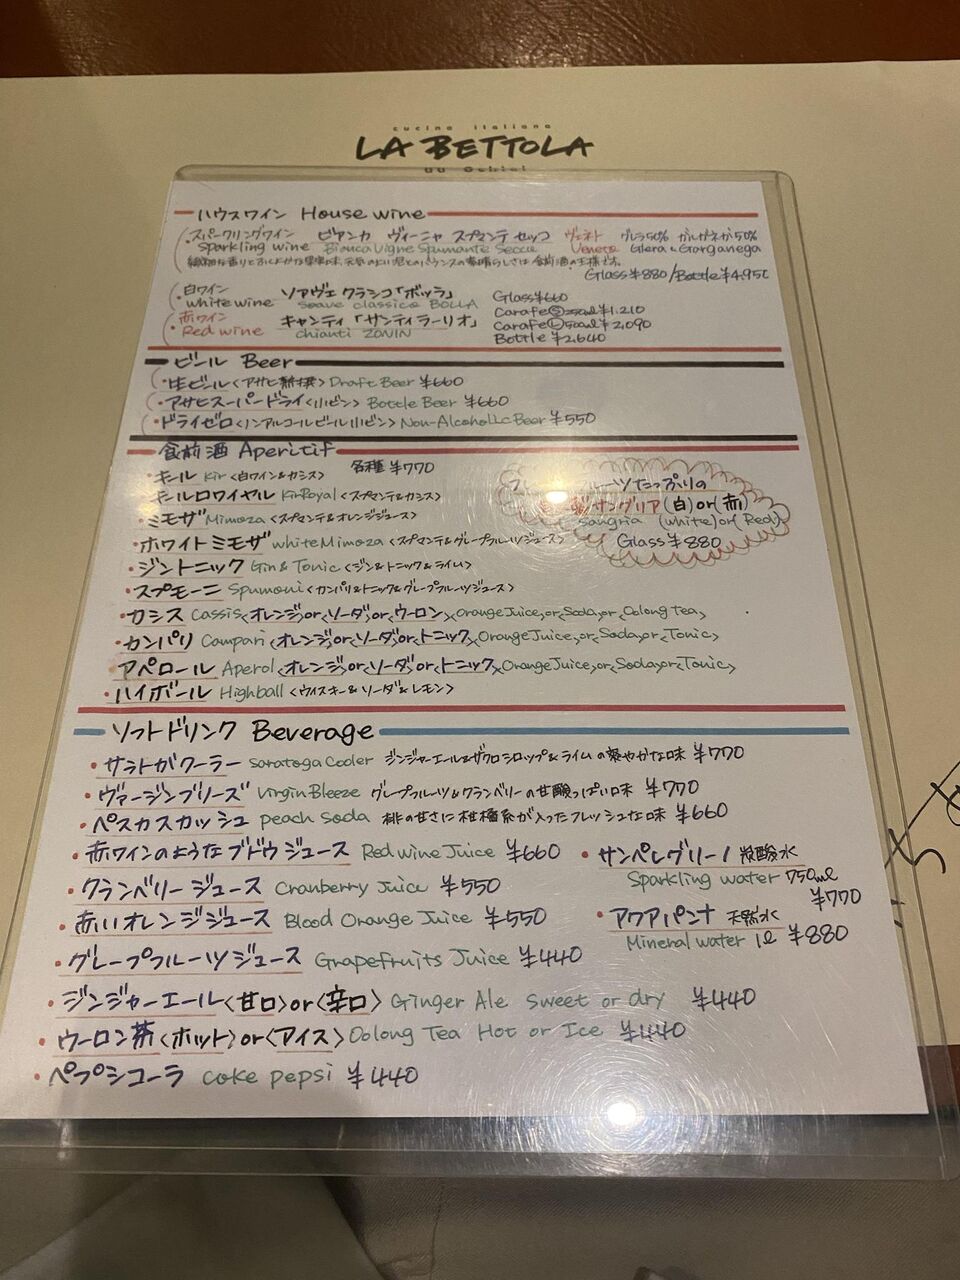 cucina italiana
LA BETTOLA
ハウスワイン House wine
スパークリングワイン ビアンカ ヴィーニャ スプマンテ セッコ ヴェネト グレラ50% ガルガネガ50%
Sparkling wine Bianca Vigne Spumante Secco Veneto Glera & Garganega
Glass ¥880/Bottle ¥4,950
・白ワイン ソアヴェ クラシコ「ボッラ」 Glass ¥660
white wine Soave classico BOLLA Carafe Ⓢ250ml ¥1,210
・赤ワイン キャンティ「サンティラーリオ」 Carafe Ⓛ500ml ¥2,090
Red wine chianti ZONIN Bottle ¥2,640
ビール Beer
・生ビール〈アサヒ熟撰〉Draft Beer ¥660
・アサヒスーパードライ〈小ビン〉Bottle Beer ¥660
・ドライゼロ〈ノンアルコールビール小ビン〉Non-Alcohollc Beer ¥550
食前酒 Aperitif
・キール Kir〈白ワイン&カシス〉 各種 ¥770
・キールロワイヤル Kir Royal〈スプマンテ&カシス〉
・ミモザ Mimoza〈スプマンテ&オレンジジュース〉
・ホワイトミモザ white Mimoza〈スプマンテ&グレープフルーツジュース〉
・ジントニック Gin & Tonic〈ジン&トニック&ライム〉
・スプモーニ Spumoni〈カンパリ&トニック&グレープフルーツジュース〉
・カシス Cassis〈オレンジ〉or〈ソーダ〉or〈ウーロン〉〈Orange Juice〉or〈Soda〉or〈Oolong tea〉
・カンパリ Campari〈オレンジ〉or〈ソーダ〉or〈トニック〉〈Orange Juice〉or〈Soda〉or〈Tonic〉
・アペロール Aperol〈オレンジ〉or〈ソーダ〉or〈トニック〉〈Orange Juice〉or〈Soda〉or〈Tonic〉
・ハイボール Highball〈ウイスキー&ソーダ&レモン〉
フルーツたっぷりの
製サングリア(白)or(赤)
sangria (white)or(Red)
Glass ¥880
ソフトドリンク Beverage
・サラトガクーラー Saratoga Cooler ジンジャーエール&ザクロシロップ&ライムの爽やかな味 ¥770
・ヴァージンブリーズ Virgin Bleeze グレープフルーツ&クランベリーの甘酸っぱい味 ¥770
・ペスカスカッシュ peach soda 桃の甘さに柑橘系が入ったフレッシュな味 ¥660
・赤ワインのようなブドウジュース Red wine Juice ¥660
・クランベリージュース Cranberry Juice ¥550
・赤いオレンジジュース Blood Orange Juice ¥550
・グレープフルーツジュース Grapefruits Juice ¥440
・ジンジャーエール〈甘口〉or〈辛口〉Ginger Ale Sweet or dry ¥440
・ウーロン茶〈ホット〉or〈アイス〉Oolong Tea Hot or Ice ¥440
・ペプシコーラ coke pepsi ¥440
・サンペレグリーノ 炭酸水
Sparkling water 750ml
¥770
・アクアパンナ 天然水
Mineral water 1ℓ ¥880